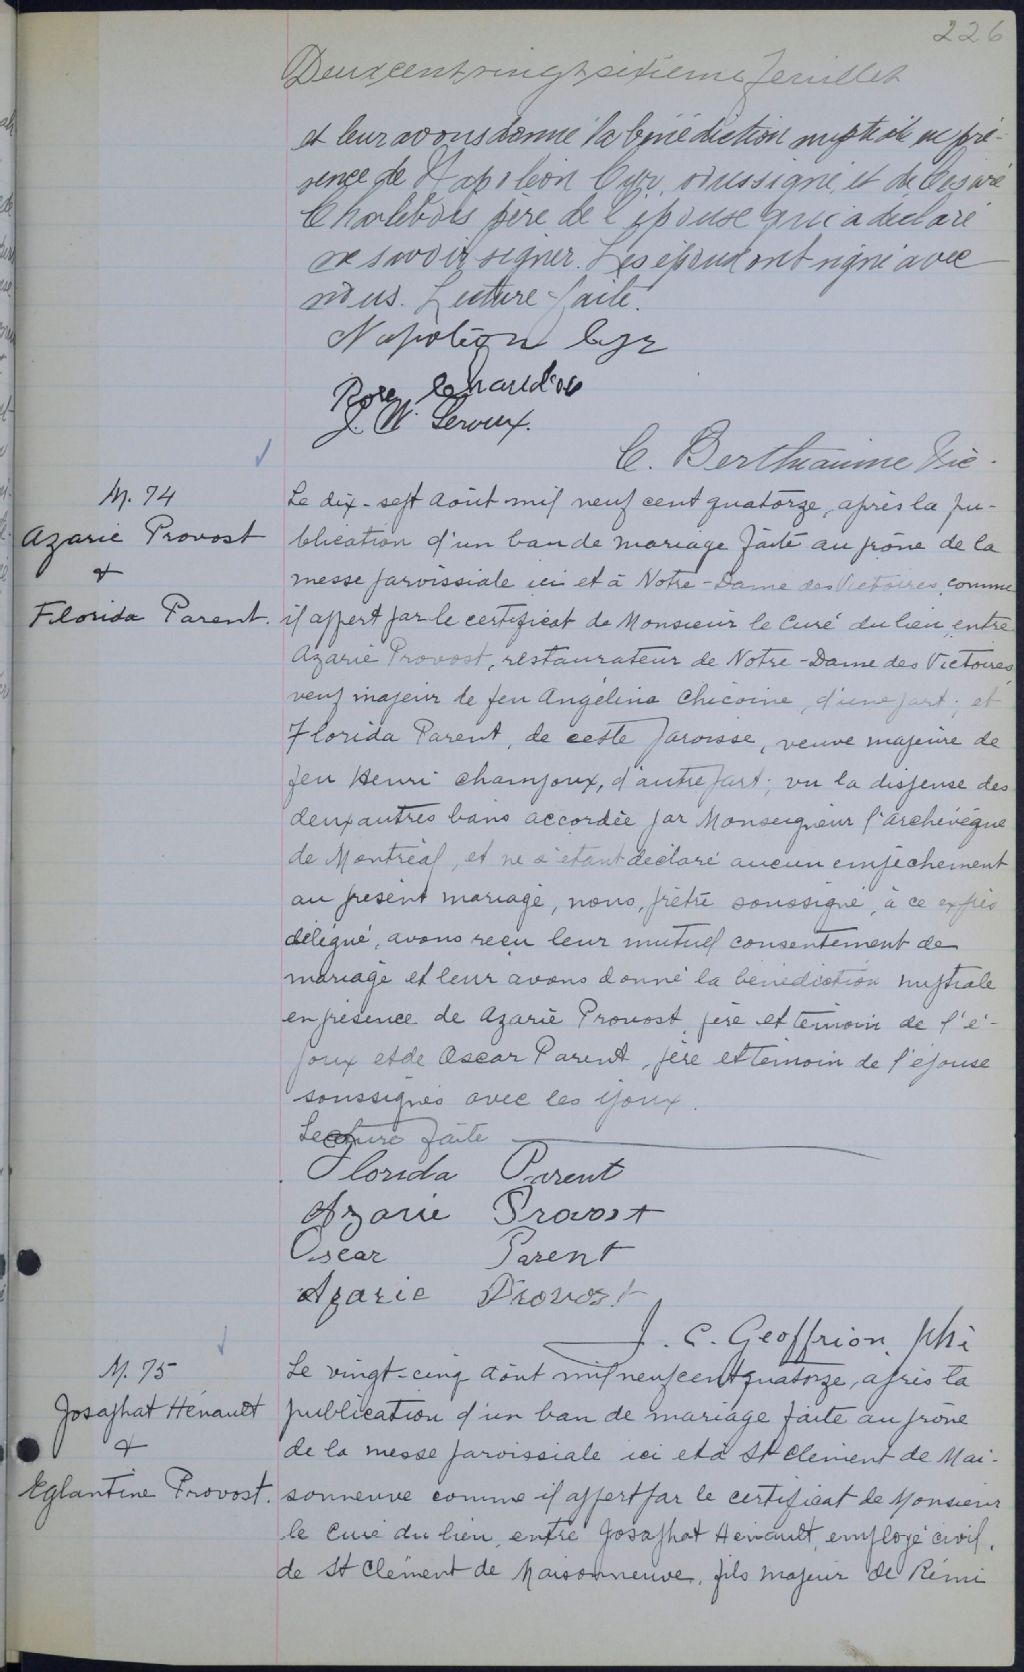 226
Deux cent vingt sixieme feuillet
et leur avons donné la bénédiction nuptiale en pré-
sence de Napoléon Cyr, soussigné, et de Césaire
Charlebois père de l'épouse qui a déclaré
ne savoir signer. Les époux ont signé avec
nous. Lecture faite.
Napoléon Cyr
Rose
J. W. Leroux.
C. Berthiaume Vic.
M. 74
Azarie Provost
&
Florida Parent.
Le dix-sept août mil neuf cent quatorze, après la pu-
blication d'un ban de mariage faite au prône de la
messe paroissiale ici et à Notre-Dame des Victoires, comme
il appert par le certificat de Monsieur le Curé du lieu, entre
Azarie Provost, restaurateur de Notre-Dame des Victoires,
veuf majeur de feu Angélina Chicoine, d'une part; et
Florida Parent, de cette paroisse, veuve majeure de
feu Henri Champoux, d'autre part; vu la dispense des
deux autres bans accordée par Monseigneur l'archevêque
de Montréal, et ne s'étant déclaré aucun empêchement
au présent mariage, nous, prêtre soussigné, à ce exprès
délégué, avons reçu leur mutuel consentement de
mariage et leur avons donné la bénédiction nuptiale
en présence de Azarie Provost, père et témoin de l'é-
poux et de Oscar Parent, père et témoin de l'épouse
soussignés avec les époux.
Lecture faite
Florida Parent
Azarie Provost
Oscar Parent
Azarie Provost
J. C. Geoffrion, ptre
M. 75
Josaphat Hénault
&
Eglantine Provost.
Le vingt-cinq août mil neuf cent quatorze, après la
publication d'un ban de mariage faite au prône
de la messe paroissiale ici et à St Clément de Mai-
sonneuve comme il appert par le certificat de Monsieur
le curé du lieu, entre Josaphat Hénault, employé civil,
de St Clément de Maisonneuve, fils majeur de Rémi